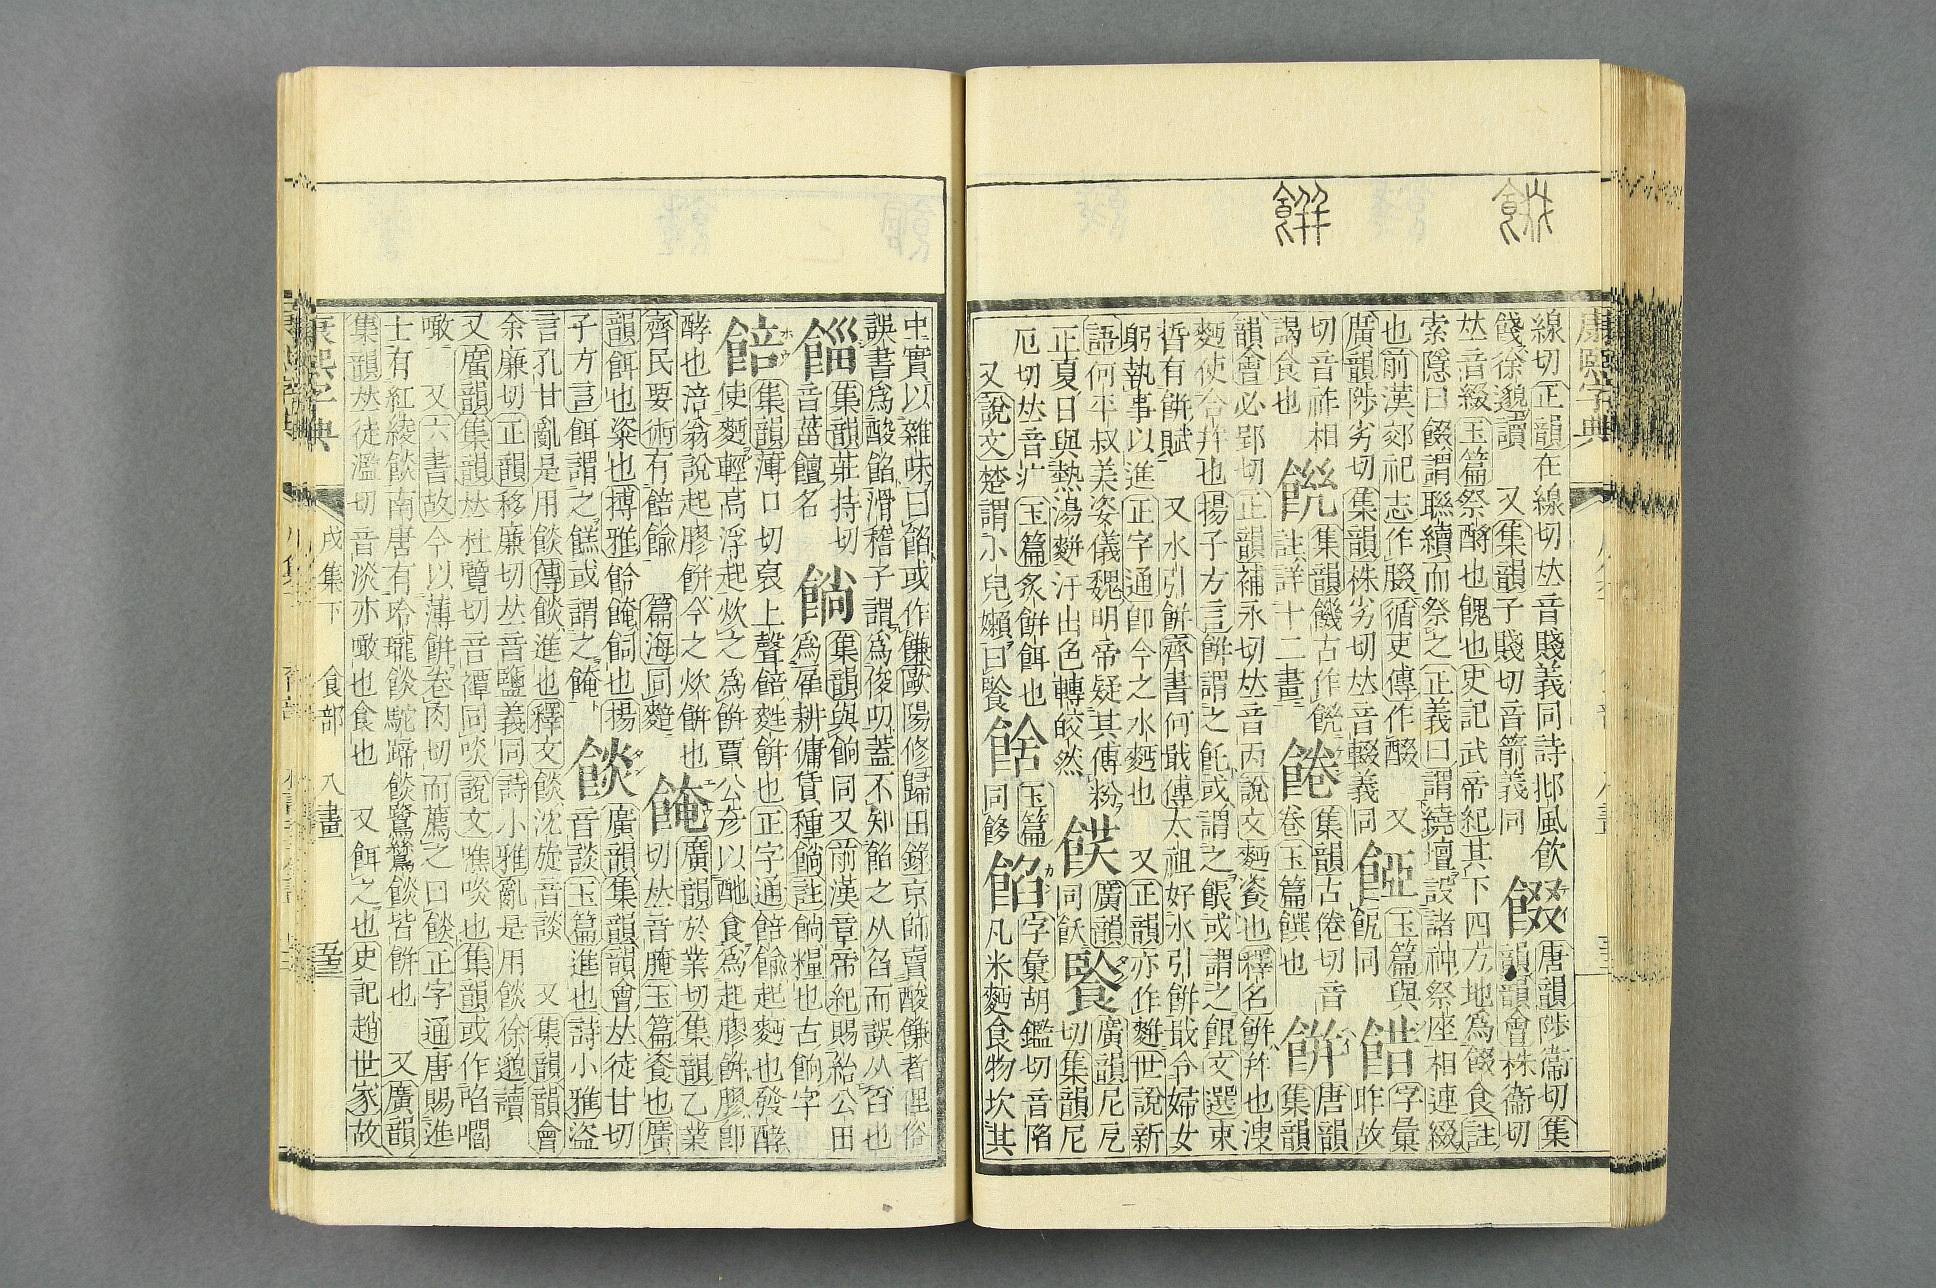 康熙字典
線切正韻在線切𠀤音賤義同詩邶風飲
餞徐邈讀 又集韻子賤切音箭義同
餟
唐韻陟衞切集
韻韻會株衞切
𠀤音綴玉篇祭酹也餽也史記武帝紀其下四方地爲餟食註
索隱曰餟謂聯續而祭之正義曰謂繞壇設諸神祭座相連綴
也前漢郊祀志作腏循吏傳作醊 又
廣韻陟劣切集韻株劣切𠀤音輟義同
餏
玉篇與
飥同
䬤
字彙
咋故
切音祚相
謁食也
集韻饑古作
註詳十二畫
餋
集韻古倦切音
卷玉篇饌也
餠
唐韻
集韻
韻會必郢切正韻補永切𠀤音丙說文麪餈也釋名餠幷也溲
麪使合幷也揚子方言餠謂之飥或謂之餦或謂之餛文選束
晳有餠賦 又水引餠齊書何戢傳太祖好水引餠戢令婦女
躬執事以進正字通卽今之水麪也 又正韻亦作麰世說新
語何平叔美姿儀魏明帝疑其傅粉
正夏日與熱湯麰汗出色轉皎然
同飫
廣韻尼戹
切集韻尼
厄切𠀤音疒玉篇炙餠餌也
又說文楚謂小兒嬾曰䬷
餄
玉篇
同
餡
字彙胡鑑切音陷
凡米麪食物坎其
中實以雜味曰餡或作䭑歐陽修歸田錄京師賣酸䭑者俚俗
誤書爲酸餡滑稽子謂爲俊叨蓋不知餡之从臽而誤从舀也
䭄
集韻莊持切
音菑饘名
餉
集韻與餉同又前漢章帝紀賜給公田
爲雇耕傭賃種餉註餉糧也古餉字
餢
集韻薄口切裒上聲餢𪌘餠也正字通餢飳起麪也發酵
使麪輕高浮起炊之爲餠賈公彥以酏食爲起膠餠膠卽
酵也涪翁說起膠餠今之炊餠也
齊民要術有餢飳 篇海同𪌘
䭆
廣韻於業切集韻乙業
切𠀤音腌玉篇餈也廣
韻餌也粢也博雅䭆飼也揚
子方言餌謂之餻或謂之䭆
餤
廣韻集韻韻會𠀤徒甘切
音談玉篇進也詩小雅盜
言孔甘亂是用餤傳餤進也釋文餤沈旋音談 又集韻韻會
余廉切正韻移廉切𠀤音鹽義同詩小雅亂是用餤徐邈讀
又廣韻集韻𠀤杜覽切音禫同啖說文噍啖也集韻或作啗嚪
噉 又六書故今以薄餠卷肉切而薦之曰餤正字通唐賜進
士有紅綾餤南唐有玲瓏餤駝蹄餤鷺鷥餤皆餠也 又廣韻
集韻𠀤徒濫切音淡亦噉也食也 又餌之也史記趙世家故
康熙字典 戌集下 食部 八畫